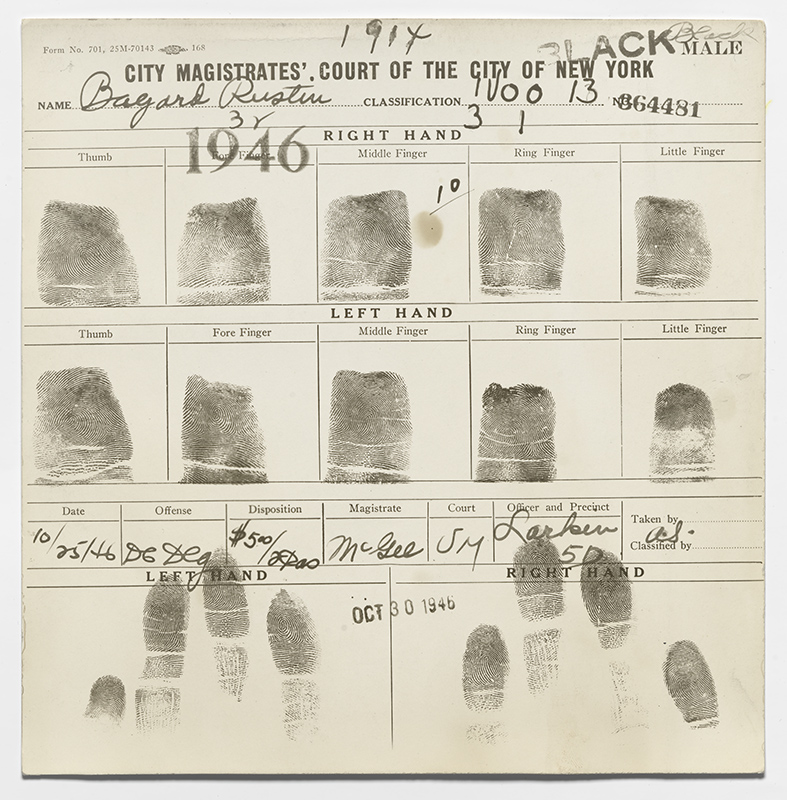 1914
Form No. 701, 25M-70143 168 BLACK Black MALE
CITY MAGISTRATES' COURT OF THE CITY OF NEW YORK
NAME Bayard Rustin CLASSIFICATION 1 U 00 13 No. 864481
3 1
32
1946
RIGHT HAND
Thumb Fore Finger Middle Finger Ring Finger Little Finger
10
LEFT HAND
Thumb Fore Finger Middle Finger Ring Finger Little Finger
Date Offense Disposition Magistrate Court Officer and Precinct Taken by
10/25/46 $5.00/2Das McGee Larkin a.s.
5D Classified by
LEFT HAND RIGHT HAND
OCT 30 1946